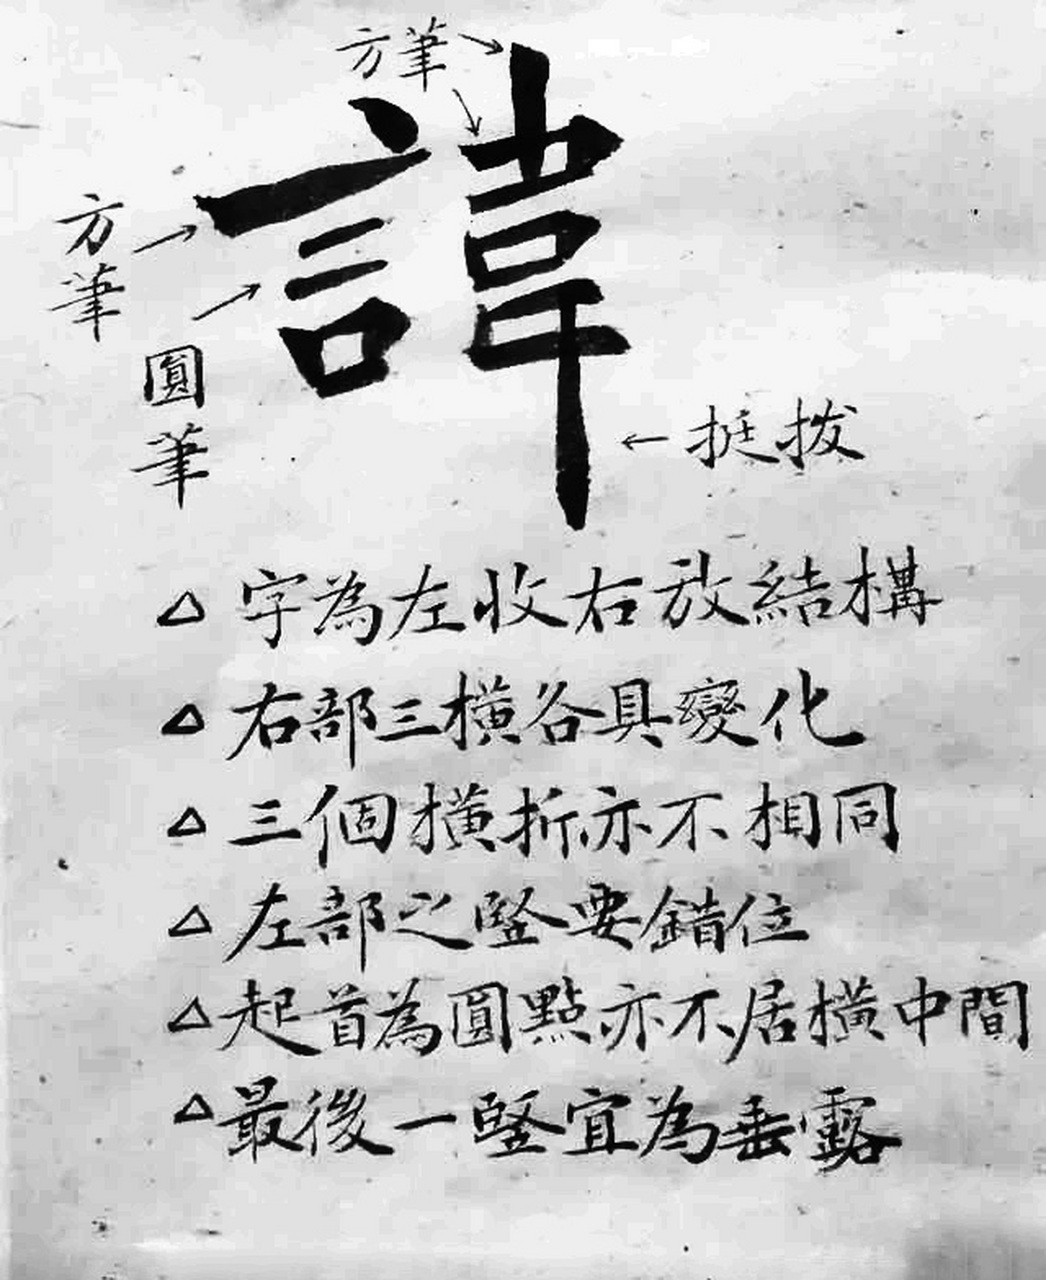 方筆
諱
方筆
圓筆
挺拨
字為左收右放結構
右部三橫各具變化
三個橫折亦不相同
左部之竪要錯位
起首為圓點亦不居橫中間
最後一竪宜為垂露